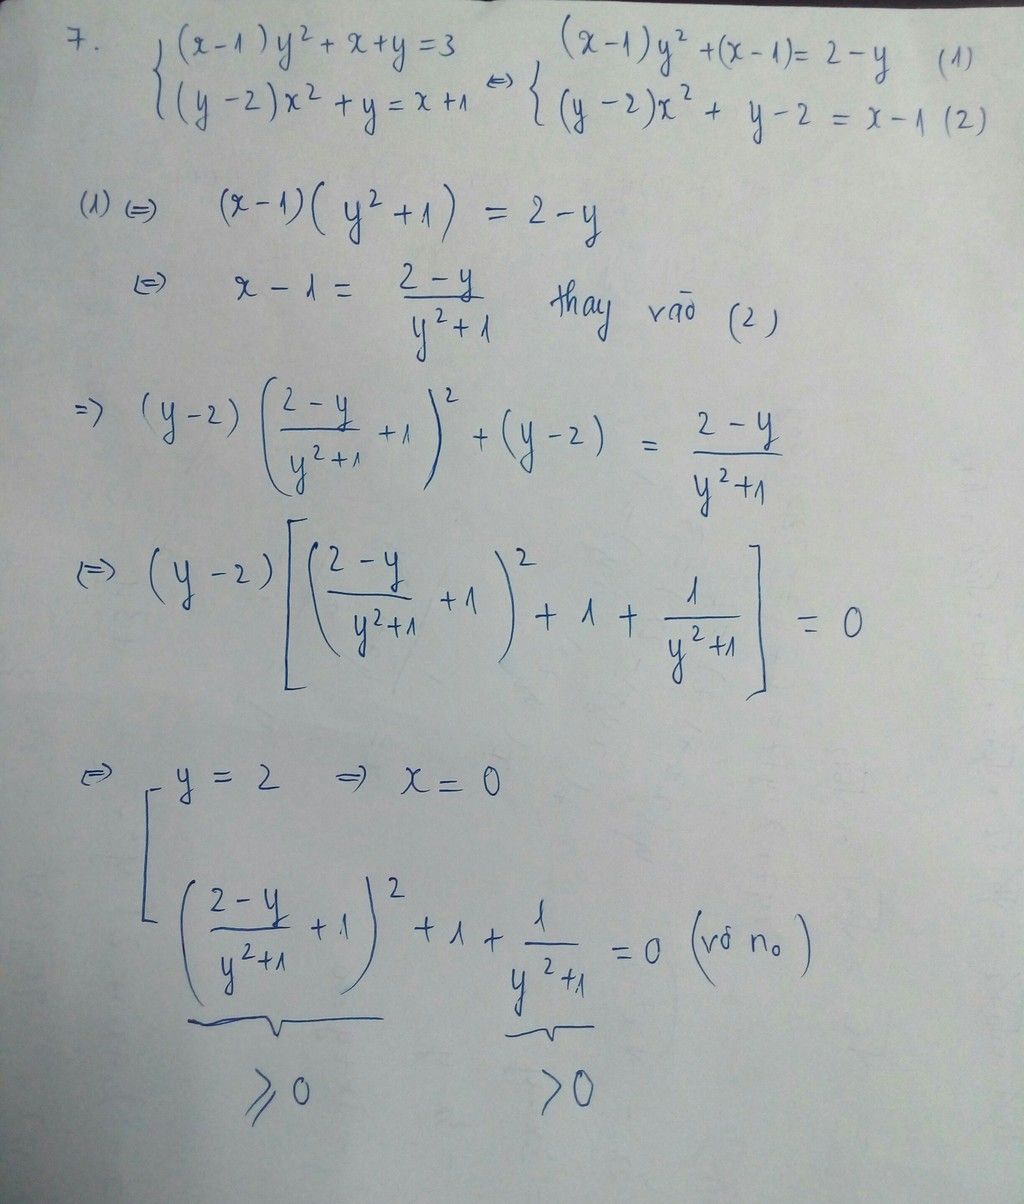 7. { (x-1)y² + x+y = 3 ⇔ { (x-1)y² + (x-1) = 2-y (1)
(y-2)x² + y = x+1 (y-2)x² + y-2 = x-1 (2)
(1) ⇔ (x-1)(y²+1) = 2-y
⇔ x-1 = (2-y)/(y²+1) thay vào (2)
⇒ (y-2)((2-y)/(y²+1) +1)² + (y-2) = (2-y)/(y²+1)
⇔ (y-2)[((2-y)/(y²+1) +1)² + 1 + 1/(y²+1)] = 0
⇔ [ y = 2 ⇒ x = 0
((2-y)/(y²+1) +1)² + 1 + 1/(y²+1) = 0 (vô n₀)
⩾ 0 > 0